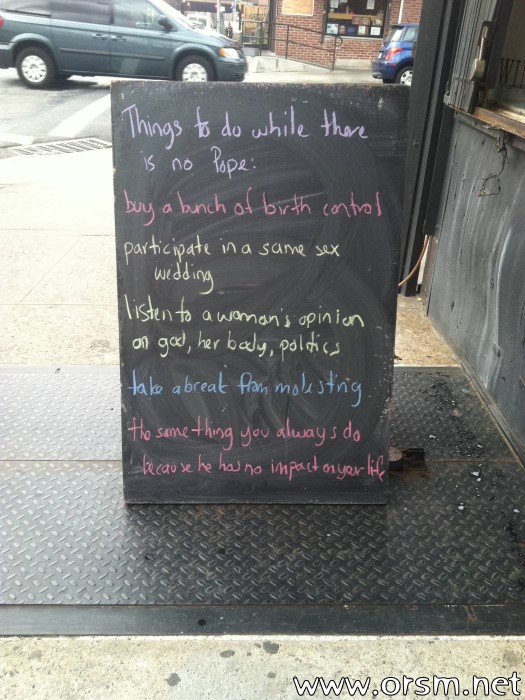 Things to do while there
is no Pope:
buy a bunch of birth control
participate in a same sex
wedding
listen to a woman's opinion
on god, her body, politics
take a break from molesting
the same thing you always do
because he has no impact on your life
www.orsm.net